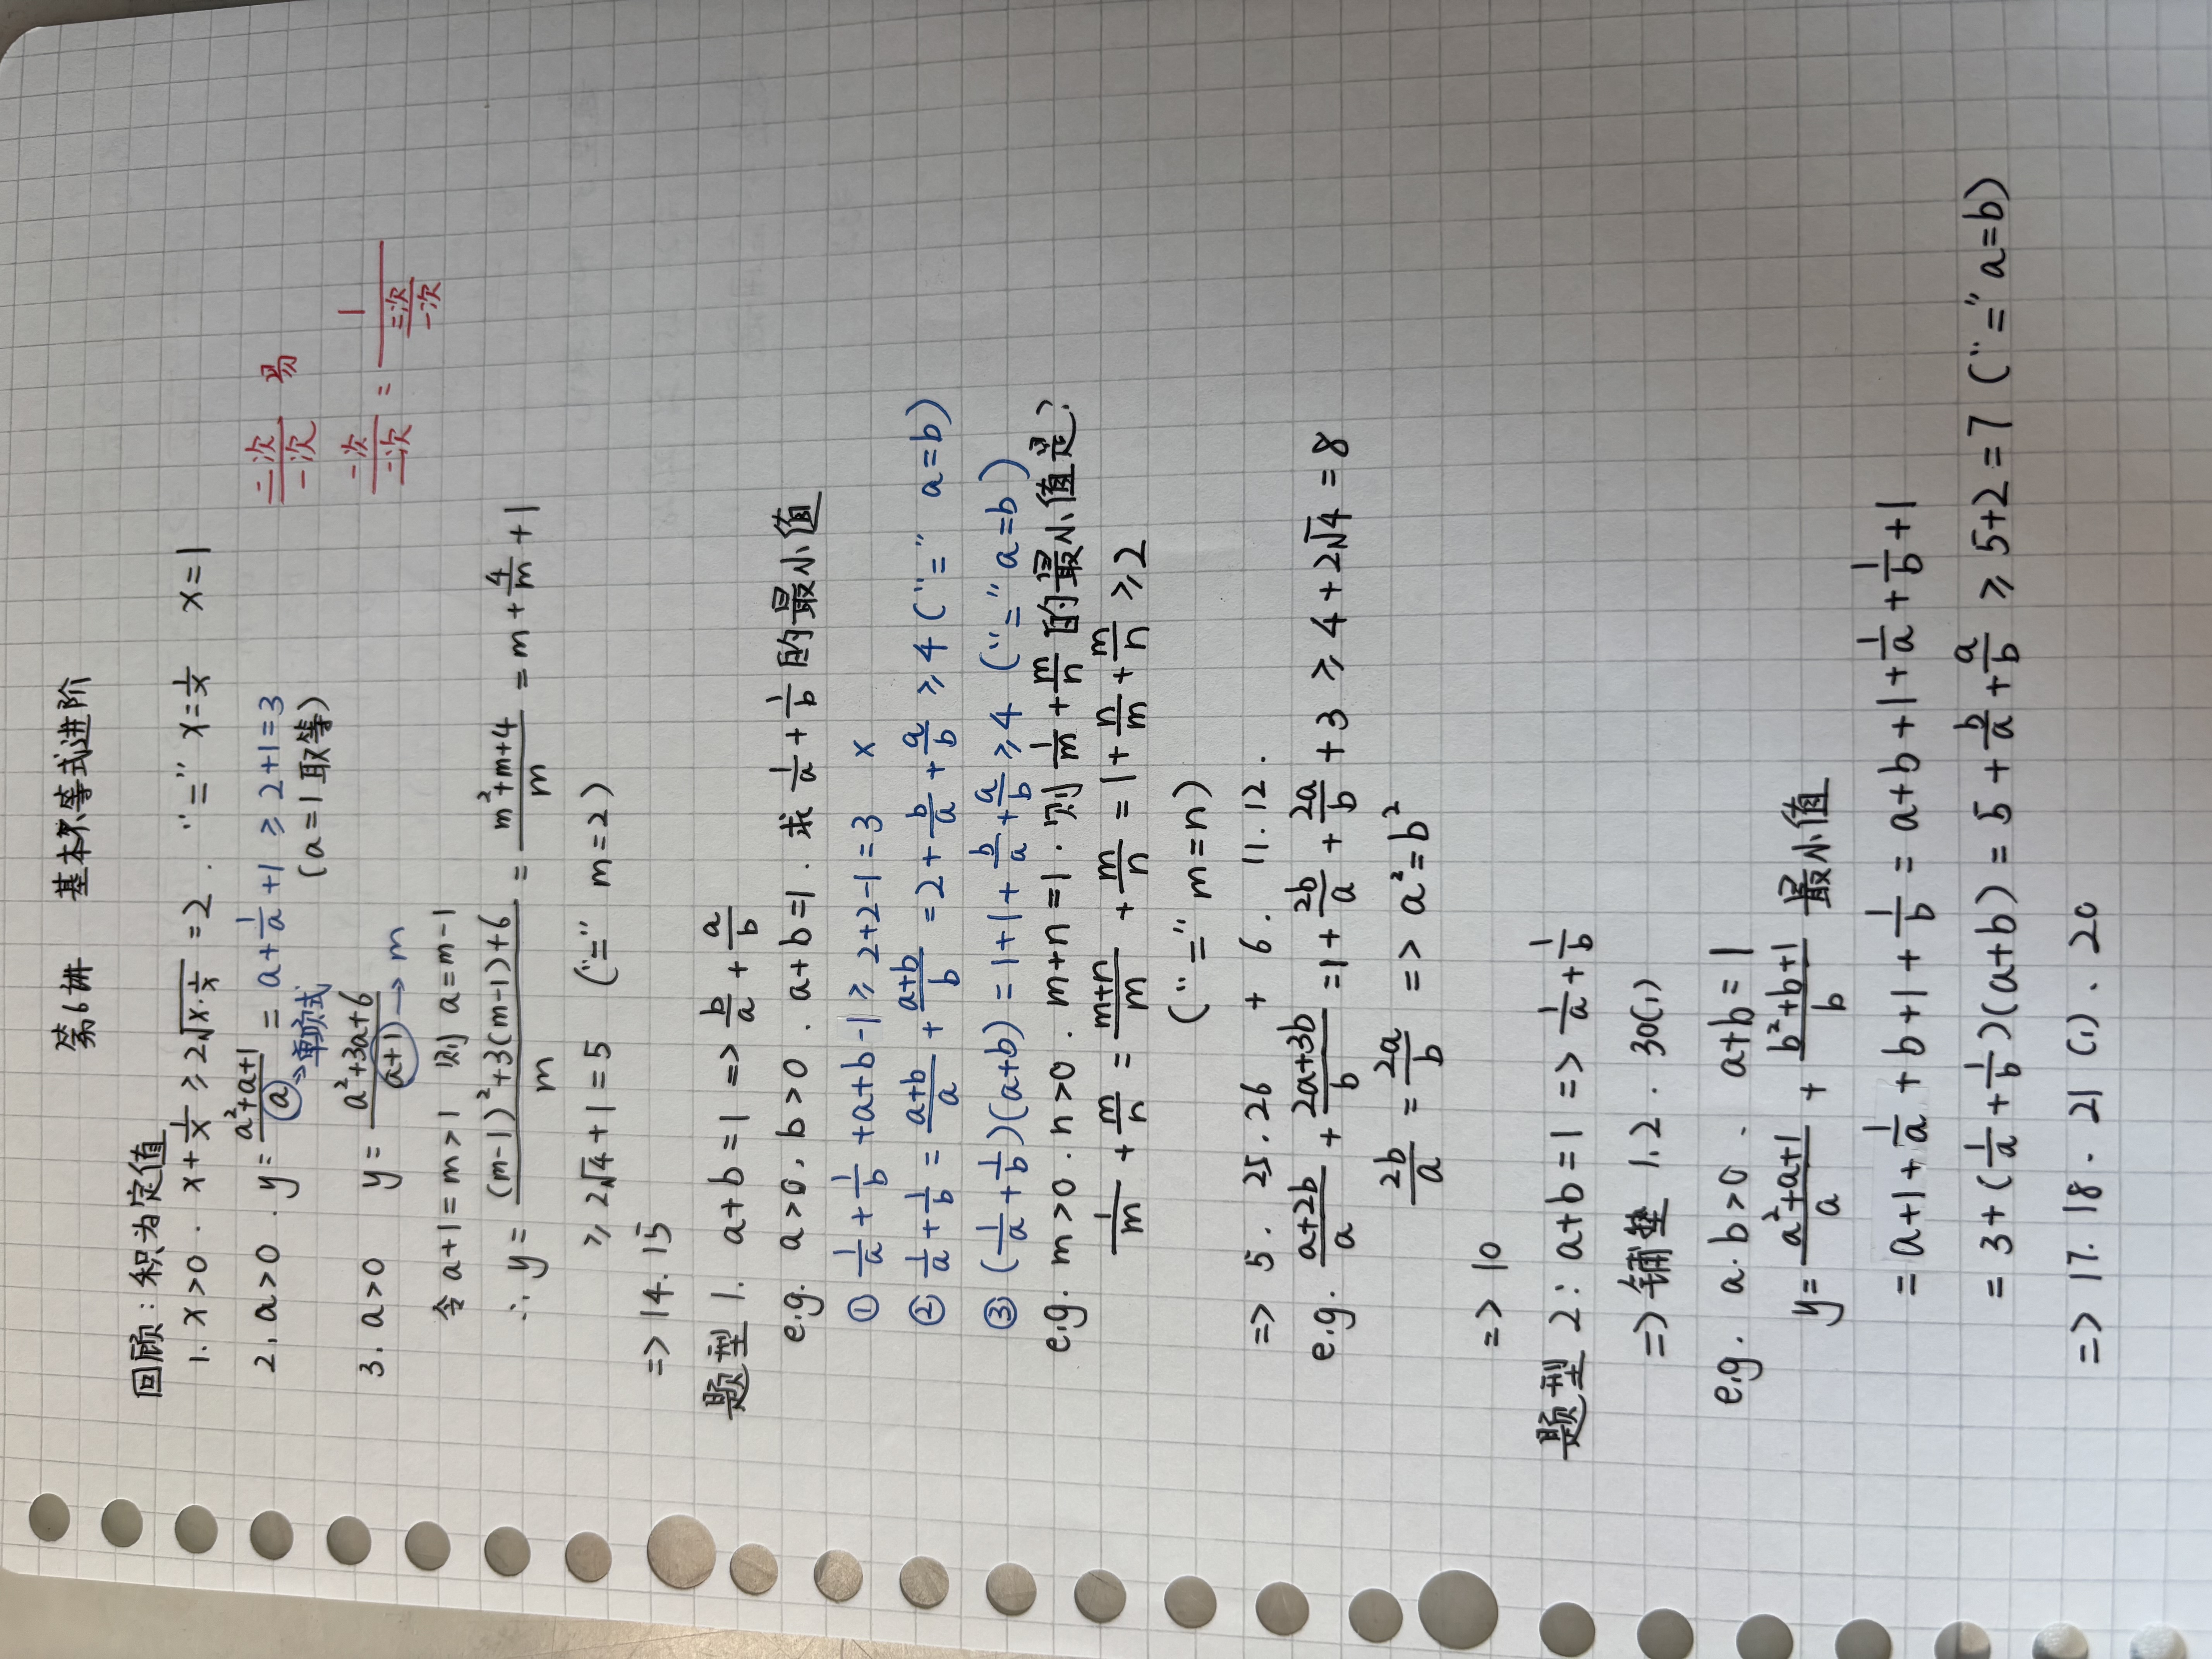 第6讲 基本不等式进阶
回顾：积为定值
1. x>0. x+1/x ≥ 2√(x·1/x) = 2. "=" x=1/x x=1
2. a>0. y=(a²+a+1)/a = a+1/a+1 ≥ 2+1=3
→单项式 (a=1取等)
二次/一次 易
3. a>0 y=(a²+3a+6)/(a+1) → m
一次/二次 = 1/(二次/一次)
令 a+1=m>1 则 a=m-1
∴ y=((m-1)²+3(m-1)+6)/m = (m²+m+4)/m = m+4/m+1
≥ 2√4+1=5 ("=" m=2)
=> 14. 15
题型1. a+b=1 => b/a+a/b
e.g. a>0, b>0. a+b=1. 求 1/a+1/b 的最小值
① 1/a+1/b+a+b-1 ≥ 2+2-1=3 ×
② 1/a+1/b=(a+b)/a+(a+b)/b=2+b/a+a/b ≥ 4 ("=" a=b)
③ (1/a+1/b)(a+b)=1+1+b/a+a/b ≥ 4 ("=" a=b)
e.g. m>0. n>0. m+n=1. 则 1/m+m/n 的最小值是?
1/m+m/n=(m+n)/m+m/n=1+n/m+m/n ≥ 2
("=" m=n)
=> 5. 25. 26 + 6. 11. 12.
e.g. (a+2b)/a+(2a+3b)/b=1+2b/a+2a/b+3 ≥ 4+2√4=8
2b/a=2a/b => a²=b²
=> 10
题型2: a+b=1 => 1/a+1/b
=> 铺垫 1.2. 30(1)
e.g. a. b>0. a+b=1
y=(a²+a+1)/a + (b²+b+1)/b 最小值
=a+1+1/a+b+1+1/b=a+b+1+1/a+1/b+1
=3+(1/a+1/b)(a+b)=5+b/a+a/b ≥ 5+2=7 ("=" a=b)
=> 17. 18. 21(1). 20